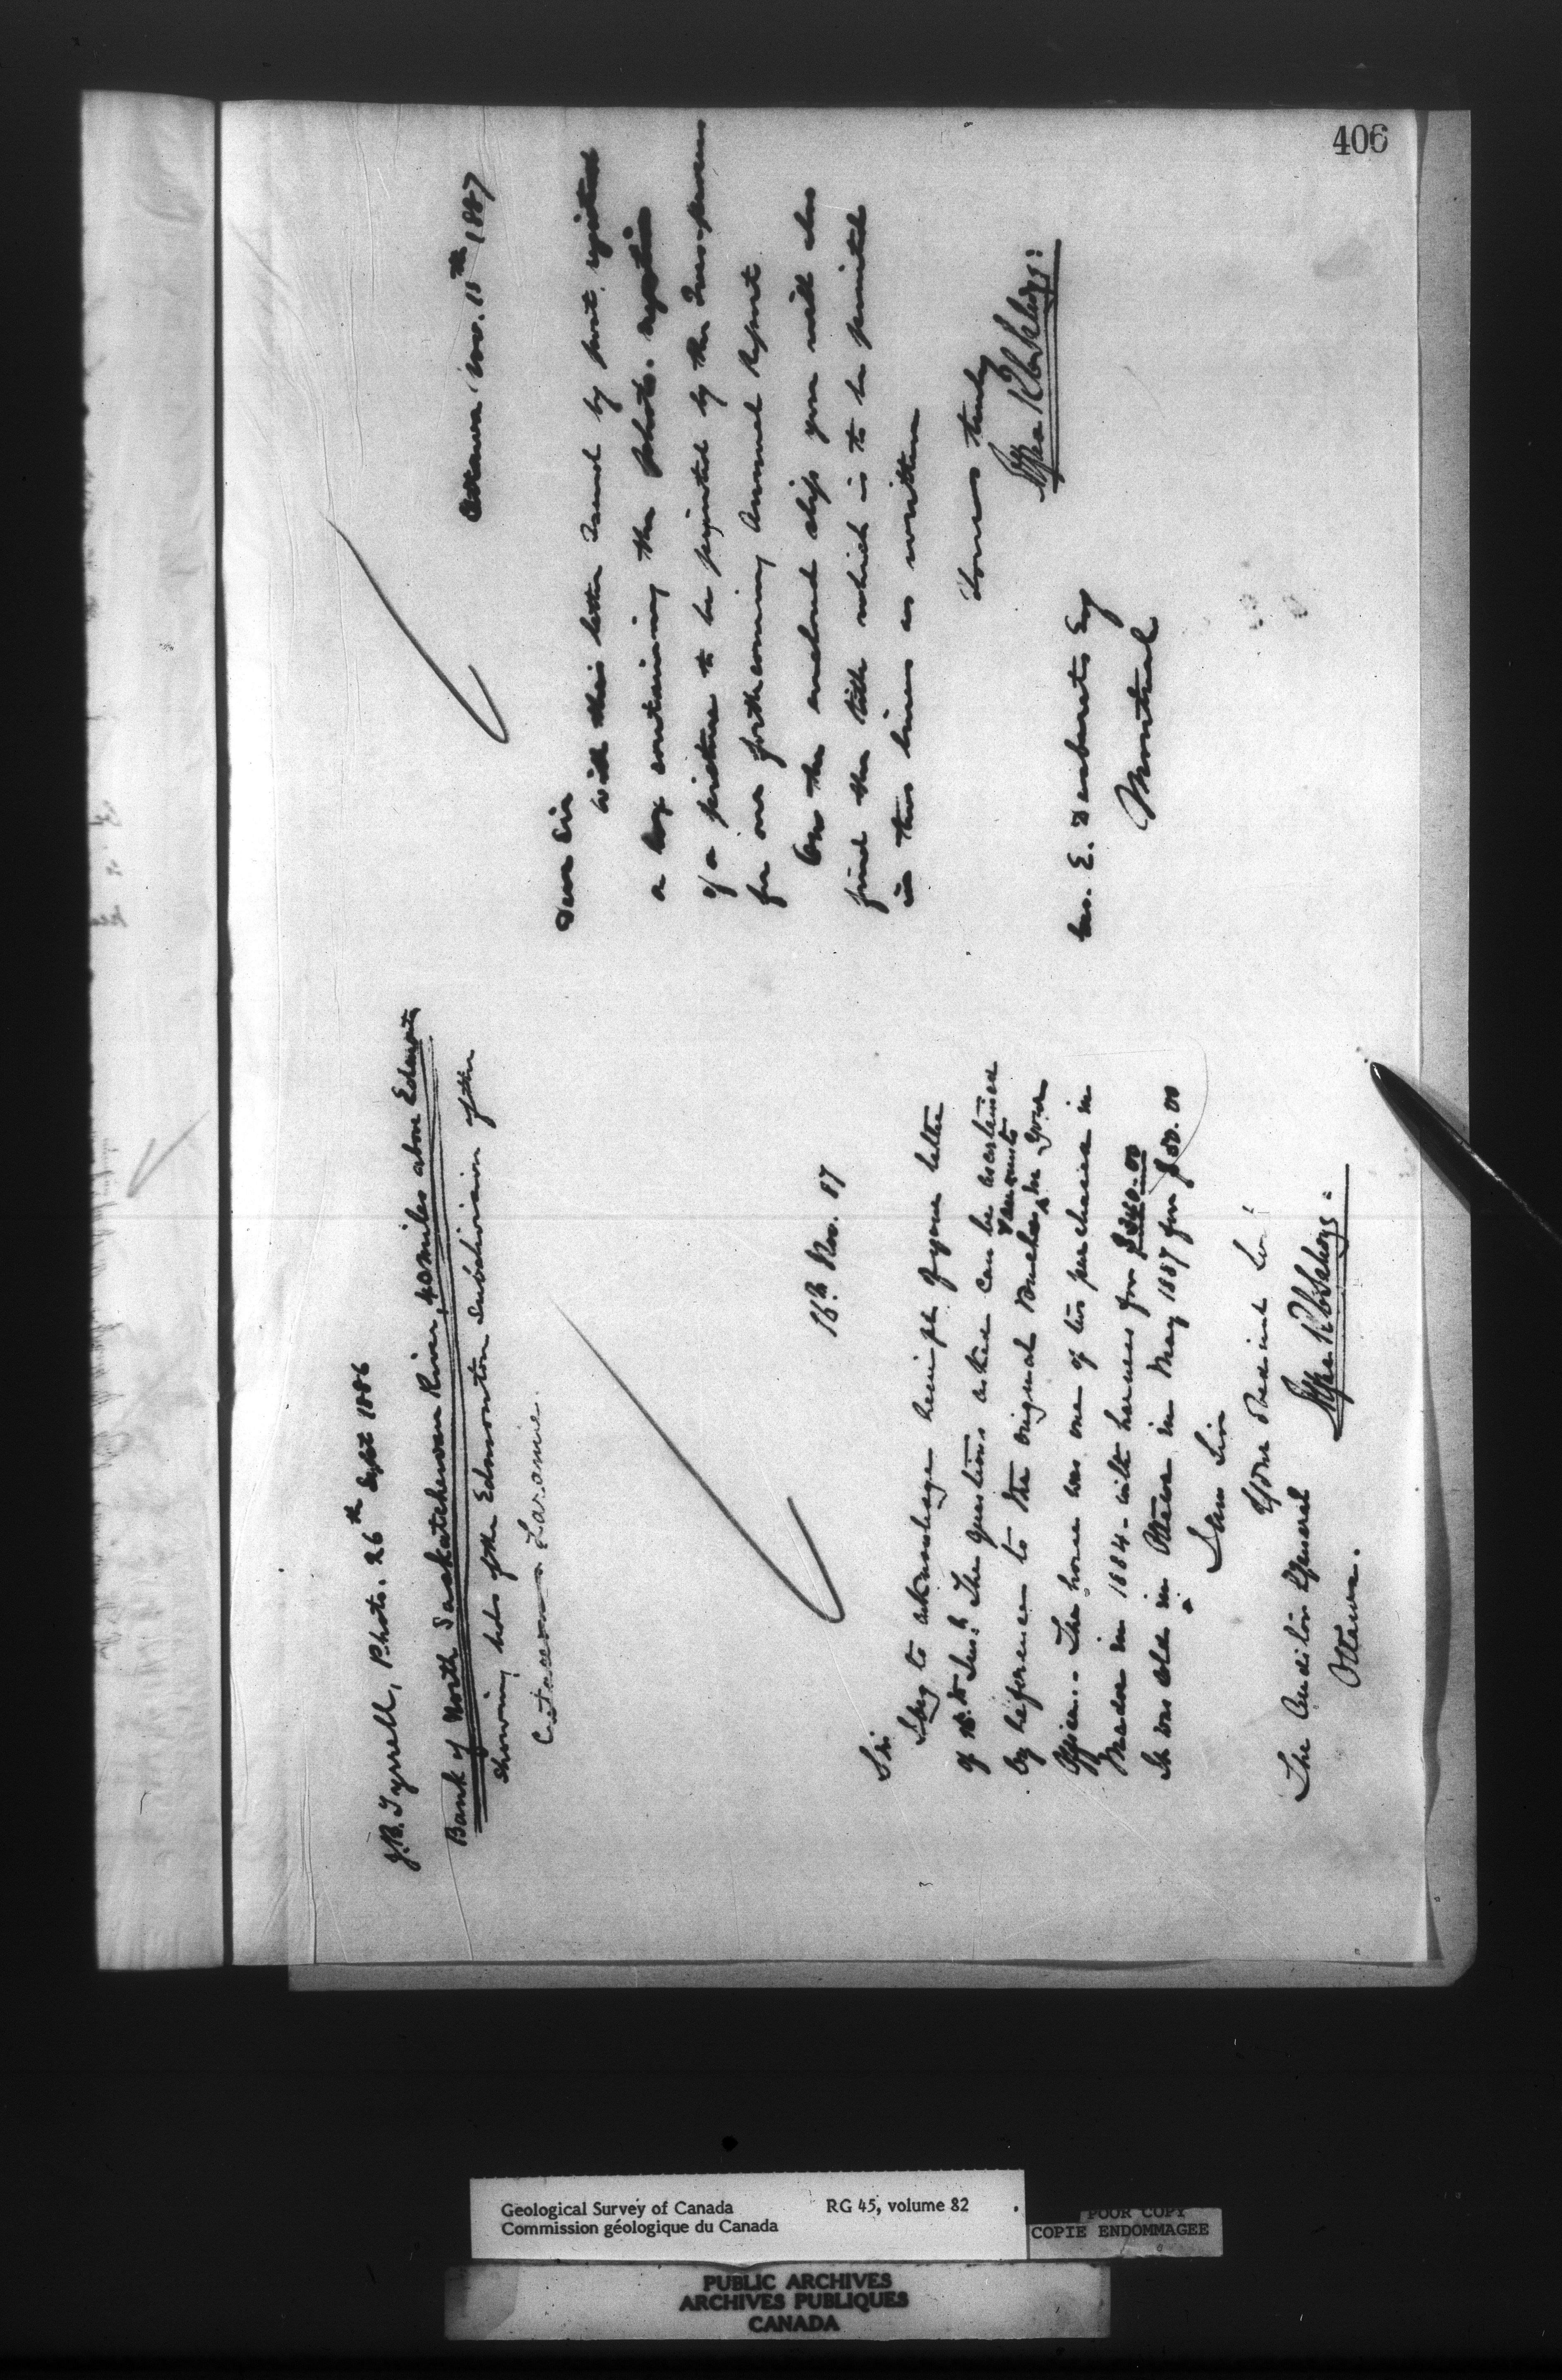 406
Ottawa Nov. 15th 1887
Dear Sir
With this letter I send by post, registered
a box containing the photo. negative
of a picture to be printed by the
for our forthcoming Annual Report
On the enclosed slip you will also
find the title which is to be printed
in two lines as written
Yours truly
Geo. E. Desbarats Esq
Montreal
J.B. Tyrrell, Photo. 26th Sept 1886
Bank of North Saskatchewan River, 40 miles above Edmonton
showing beds of the Edmonton subdivision of the
Laramie.
16th Nov. 87
Sir
I beg to acknowledge receipt of your letter
of 15th Inst. The questions asked can be ascertained
by reference to the original Vouchers & accounts in your
Office. The horse was one of two purchased in
in 1884 - with harness for $240.00
It was sold in Ottawa in May 1887 for $50.00
I am Sir
Your Obedient Svt
The Auditor General
Ottawa.
Geological Survey of Canada RG 45, volume 82
Commission géologique du Canada
POOR COPY
COPIE ENDOMMAGEE
PUBLIC ARCHIVES
ARCHIVES PUBLIQUES
CANADA